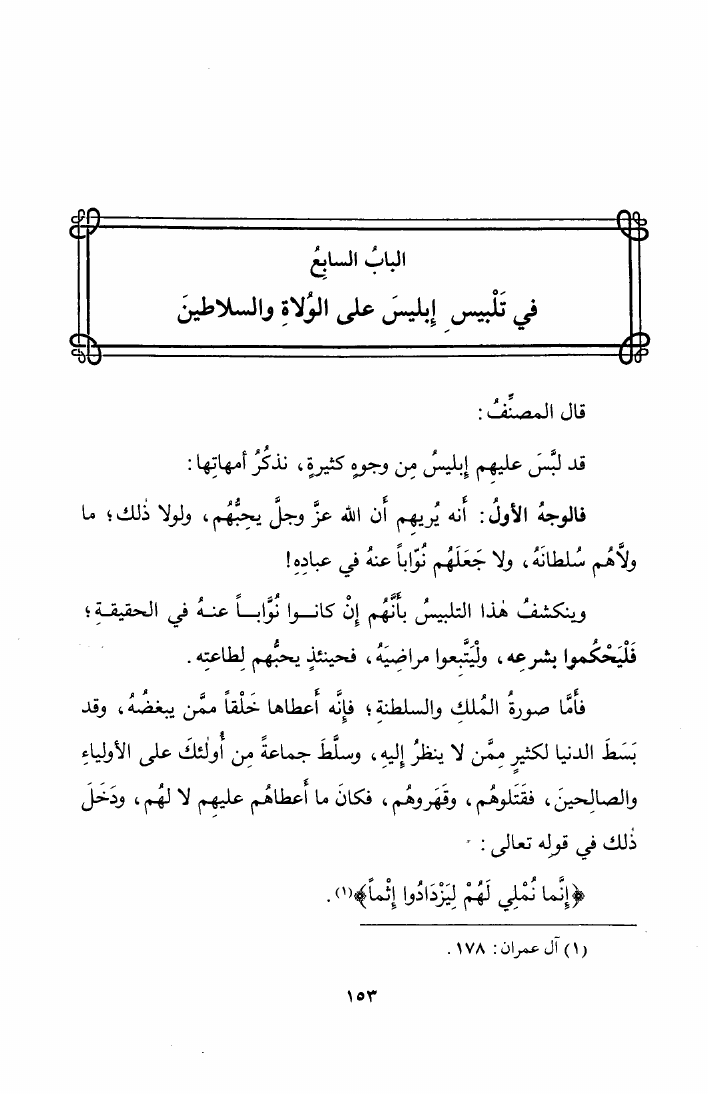 البابُ السابِعُ
في تَلْبيسِ إبليسَ على الوُلاةِ والسلاطينَ
قال المصنِّفُ:
قد لبَّسَ عليهِم إبليسُ مِن وجوهٍ كثيرةٍ، نذكُرُ أمهاتِها:
فالوجهُ الأولُ: أنه يُريهِم أن الله عزَّ وجلَّ يحِبُّهُم، ولولا ذٰلك؛ ما
ولاَّهُم سُلطانَهُ، ولا جَعَلَهُم نُوّاباً عنهُ في عبادِهِ!
وينكشفُ هٰذا التلبيسُ بأنَّهُم إنْ كانوا نُوَّاباً عنهُ في الحقيقةِ؛
فَلْيَحْكُموا بشرعِه، ولْيَتَّبِعوا مراضِيَهُ، فحينئذٍ يحبُّهم لِطاعتِه.
فأمَّا صورةُ المُلكِ والسلطنةِ؛ فإنَّه أعطاها خَلْقاً ممَّن يبغضُهُ، وقد
بَسَطَ الدنيا لكثيرٍ مِمَّن لا ينظرُ إليهِ، وسلَّطَ جماعةً مِن أُولٰئكَ على الأولياءِ
والصالِحينَ، فقَتَلوهُم، وقَهَروهُم، فكانَ ما أعطاهُم عليهِم لا لهُم، ودَخَلَ
ذٰلك في قولِه تعالى:
﴿إنَّما نُمْلِي لَهُمْ لِيَزْدَادُوا إثْماً﴾(١).
(١) آل عمران: ١٧٨.
١٥٣